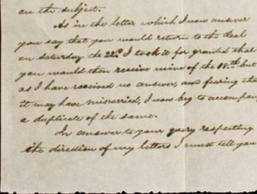 on the subject.
As in the letter which I now answer
you say that you would return to the deal
on saturday the 22d I took it for granted that
you would then receive mine of the 18th. but
as I have received no answer, and fearing that
it may have miscarried, I now beg to accompany
a duplicate of the same.
In answer to your query respecting
the direction of my letters I must tell you